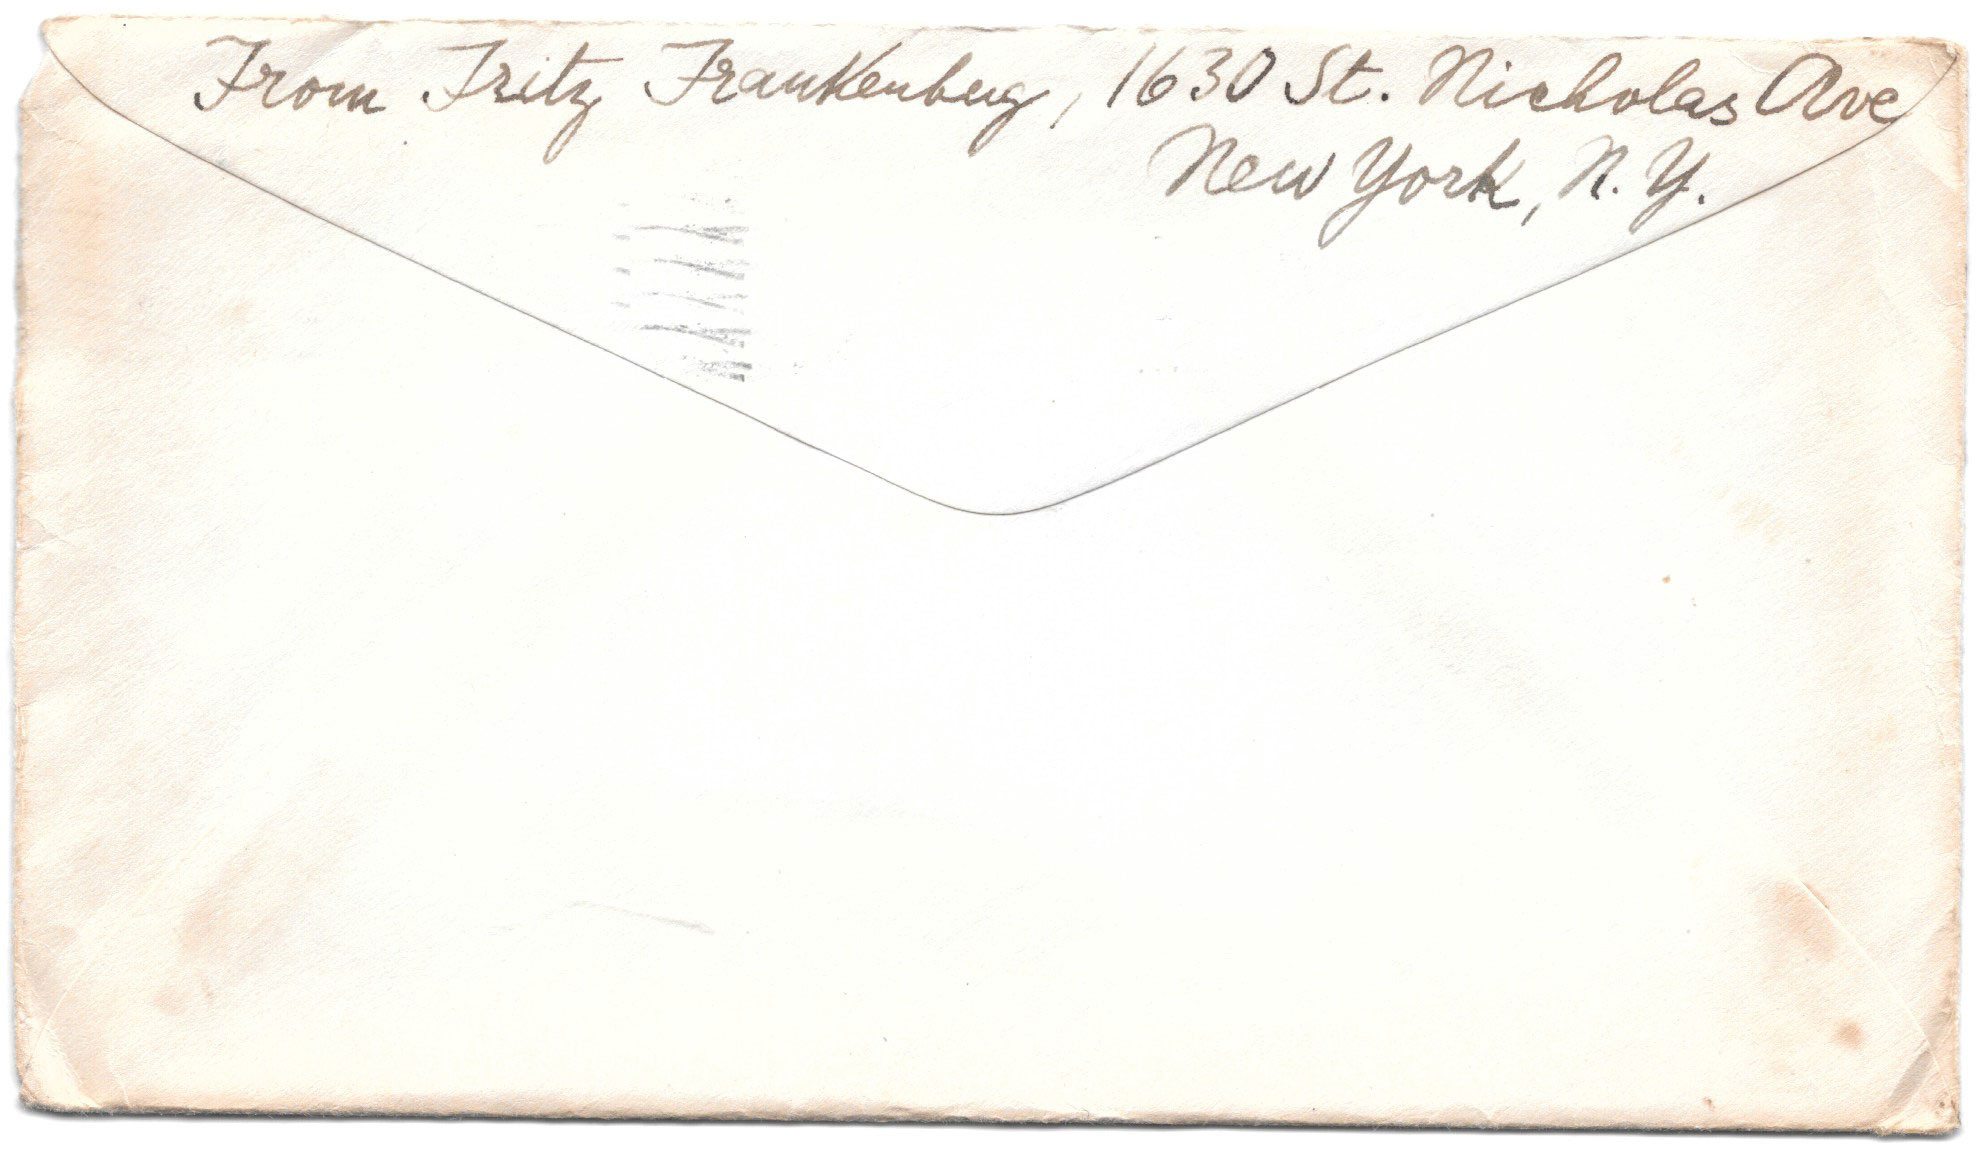 From Fritz Frankenberg, 1630 St. Nicholas Ave
New York, N. Y.